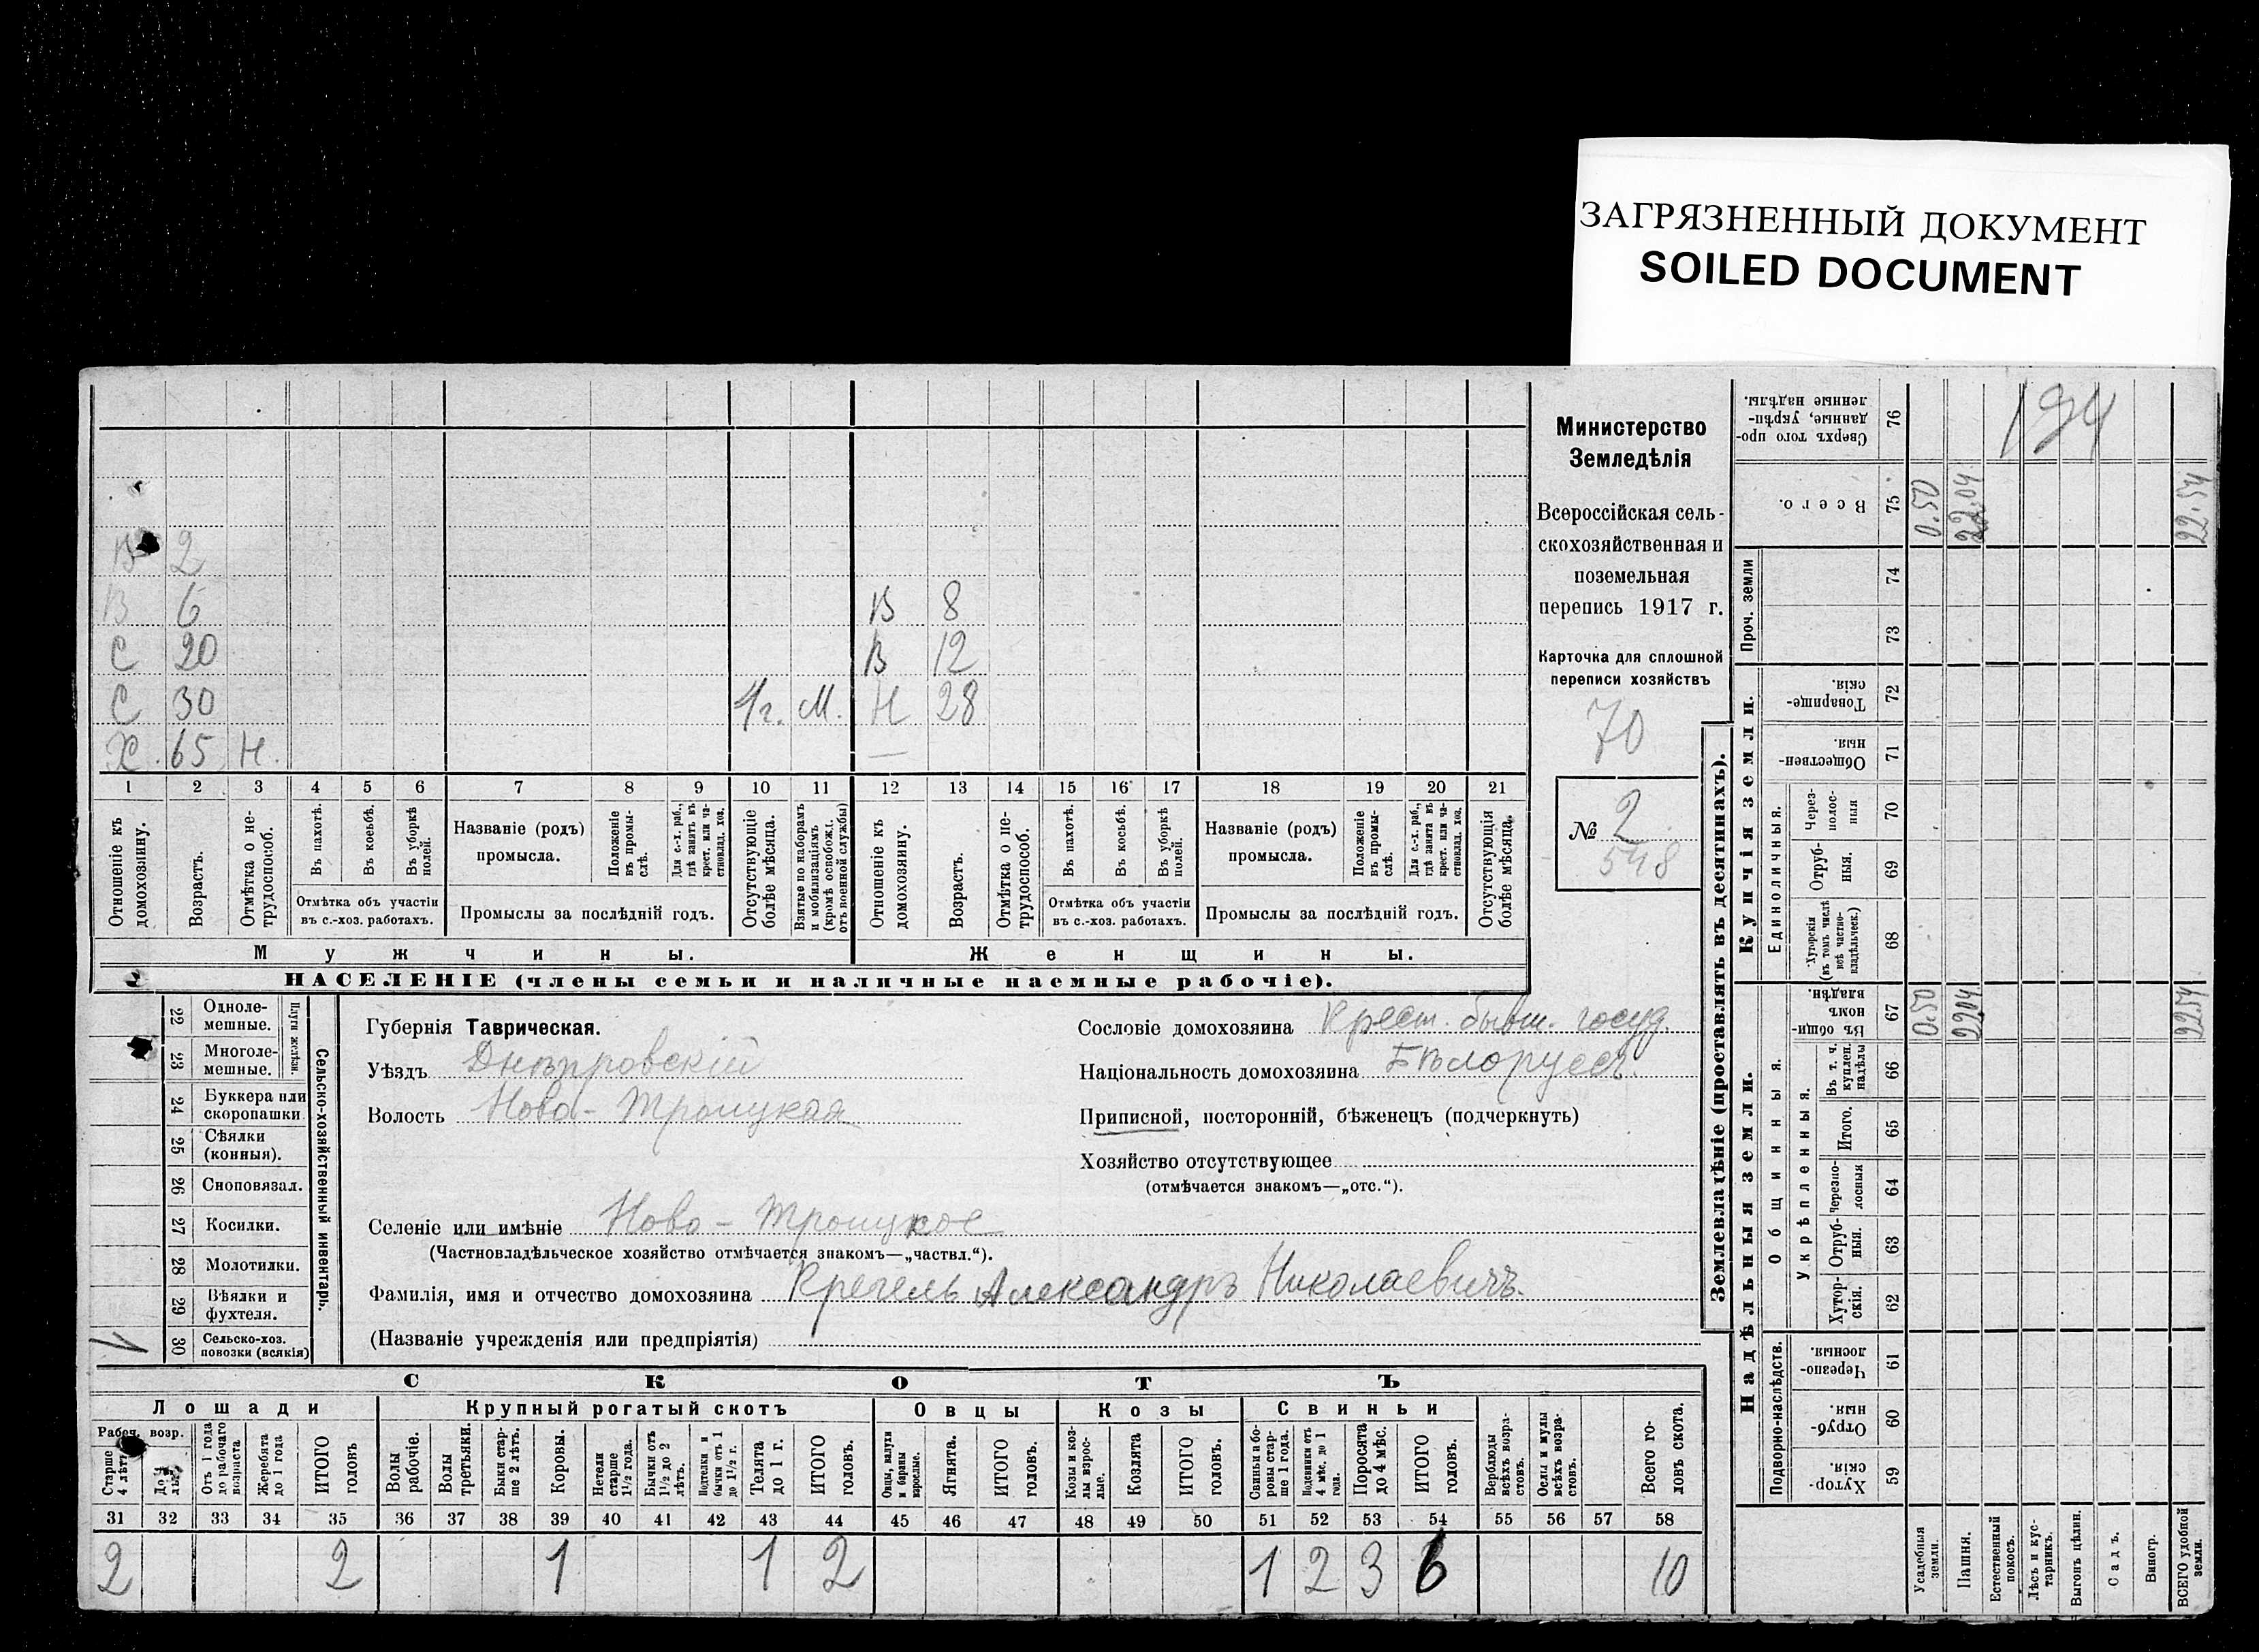 ЗАГРЯЗНЕННЫЙ ДОКУМЕНТ
SOILED DOCUMENT
В 2
В 6 В 8
С 20 В 12
С 30 1/г. М. Н 28
Х. 65 Н. —
1 2 3 4 5 6 7 8 9 10 11 12 13 14 15 16 17 18 19 20 21
Отношеніе къ домохозяину.
Возрастъ.
Отмѣтка о не-трудоспособ.
Въ пахотѣ.
Въ косьбѣ.
Въ уборкѣ полей.
Отмѣтка объ участіи въ с.-хоз. работахъ.
Названіе (родъ) промысла.
Положеніе въ промы-слѣ.
Для с.-х. раб., гдѣ занятъ въ крест. или ча-стновлад. хоз.
Промыслы за послѣдній годъ.
Отсутствующіе болѣе мѣсяца.
Взятые по наборамъ и мобилизаціямъ (кромѣ освобожд. отъ военной службы)
Отношеніе къ домохозяину.
Возрастъ.
Отмѣтка о не-трудоспособ.
Въ пахотѣ.
Въ косьбѣ.
Въ уборкѣ полей.
Отмѣтка объ участіи въ с.-хоз. работахъ.
Названіе (родъ) промысла.
Положеніе въ промы-слѣ.
Для с.-х. раб., гдѣ занята въ крест. или ча-стновлад. хоз.
Промыслы за послѣдній годъ.
Отсутствующія болѣе мѣсяца.
Мужчины. Женщины.
НАСЕЛЕНІЕ (члены семьи и наличные наемные рабочіе).
Министерство
Земледѣлія
Всероссійская сель-
скохозяйственная и
поземельная
перепись 1917 г.
Карточка для сплошной
переписи хозяйствъ
70
№ 2
548
22 Одноле-мешные.
23 Многоле-мешные.
Плуги желѣзн
24 Буккера или скоропашки
25 Сѣялки (конныя).
26 Сноповязал.
27 Косилки.
28 Молотилки.
29 Вѣялки и фухтеля.
30 Сельско-хоз. повозки (всякія)
1
Сельско-хозяйственный инвентарь.
Губернія Таврическая.
Уѣздъ Днѣпровскій
Волость Ново-Троицкая
Селеніе или имѣніе Ново-Троицкое
(Частновладѣльческое хозяйство отмѣчается знакомъ—„частвл.“).
Фамилія, имя и отчество домохозяина Крегель Александръ Николаевичъ.
(Названіе учрежденія или предпріятія)
Сословіе домохозяина Крест. бывш. госуд.
Національность домохозяина Бѣлоруссъ.
Приписной, посторонній, бѣженецъ (подчеркнуть)
Хозяйство отсутствующее
(отмѣчается знакомъ—„отс.“).
СКОТЪ
Лошади Крупный рогатый скотъ Овцы Козы Свиньи
Рабоч. возр.
Старше 4 лѣтъ
До 4 лѣтъ
Отъ 1 года до рабочаго возраста
Жеребята до 1 года
ИТОГО головъ
Волы рабочіе.
Волы третьяки.
Быки стар-ше 2 лѣтъ.
Коровы.
Нетели старше 1½ года.
Бычки отъ 1½ до 2 лѣтъ.
Подтелки и бычки отъ 1 до 1½ г.
Телята до 1 г.
ИТОГО головъ.
Овцы, валухи и бараны взрослые.
Ягнята.
ИТОГО головъ.
Козы и коз-лы взрос-лые.
Козлята
ИТОГО головъ.
Свиньи и бо-ровы стар-ше 1 года.
Подсвинки отъ 4 мѣс. до 1 года.
Поросята до 4 мѣс.
ИТОГО головъ.
Верблюды всѣхъ возра-стовъ.
Ослы и мулы всѣхъ возра-стовъ.
Всего го-ловъ скота.
31 32 33 34 35 36 37 38 39 40 41 42 43 44 45 46 47 48 49 50 51 52 53 54 55 56 57 58
2 2 1 1 2 1 2 3 6 10
Землевладѣніе (проставлять въ десятинахъ).
Надѣльныя земли. Купчія земли. Проч. земли
Подворно-наслѣдств.
Общинныя.
Укрѣпленныя.
Единоличныя.
Сверхъ того про-данные, укрѣп-ленные надѣлы. 76 194
Всего. 75 0.50 22.04 22.54
74
73
Товарище-скія. 72
Обществен-ныя. 71
Через-полос-ныя 70
Отруб-ныя. 69
Хуторскія (въ томъ числѣ всѣ частно-владѣльческ.) 68
Въ общин-номъ владѣн. 67 0.50 22.04 22.54
Въ т. ч. куплен. надѣлы 66
Итого. 65
Черезпо-лосныя 64
Отруб-ныя. 63
Хутор-скія. 62
Черезпо-лосныя. 61
Отруб-ныя. 60
Хутор-скія. 59
Усадебныя земли.
Пашня.
Естественный покосъ.
Лѣсъ и кус-тарникъ.
Выгонъ цѣлин.
Садъ.
Виногр.
ВСЕГО удобной земли.